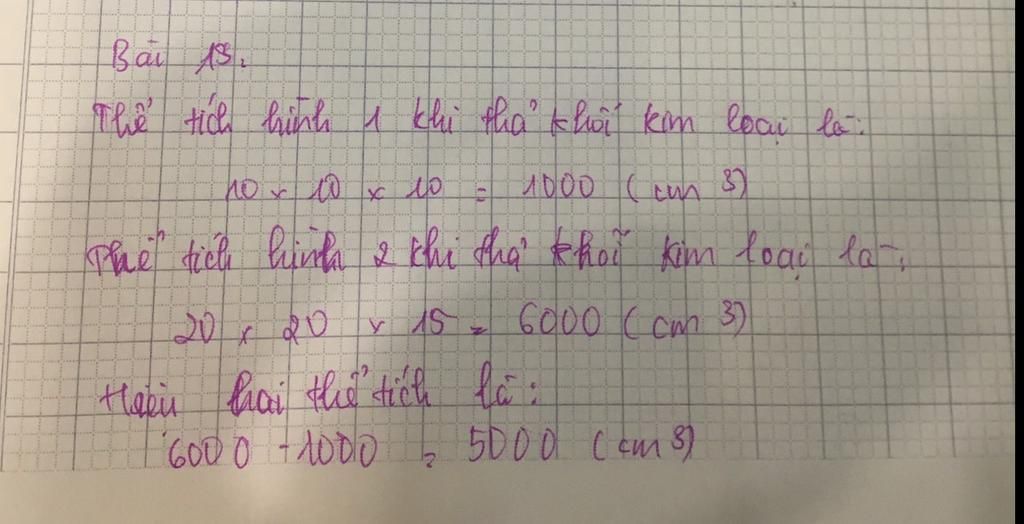 Bài 13.
Thể tích hình 1 khi thả khối kim loại là:
10 x 10 x 10 = 1000 (cm 3)
Thể tích hình 2 khi thả khối kim loại là:
20 x 20 x 15 = 6000 (cm 3)
Hiệu hai thể tích là:
6000 - 1000 = 5000 (cm 3)